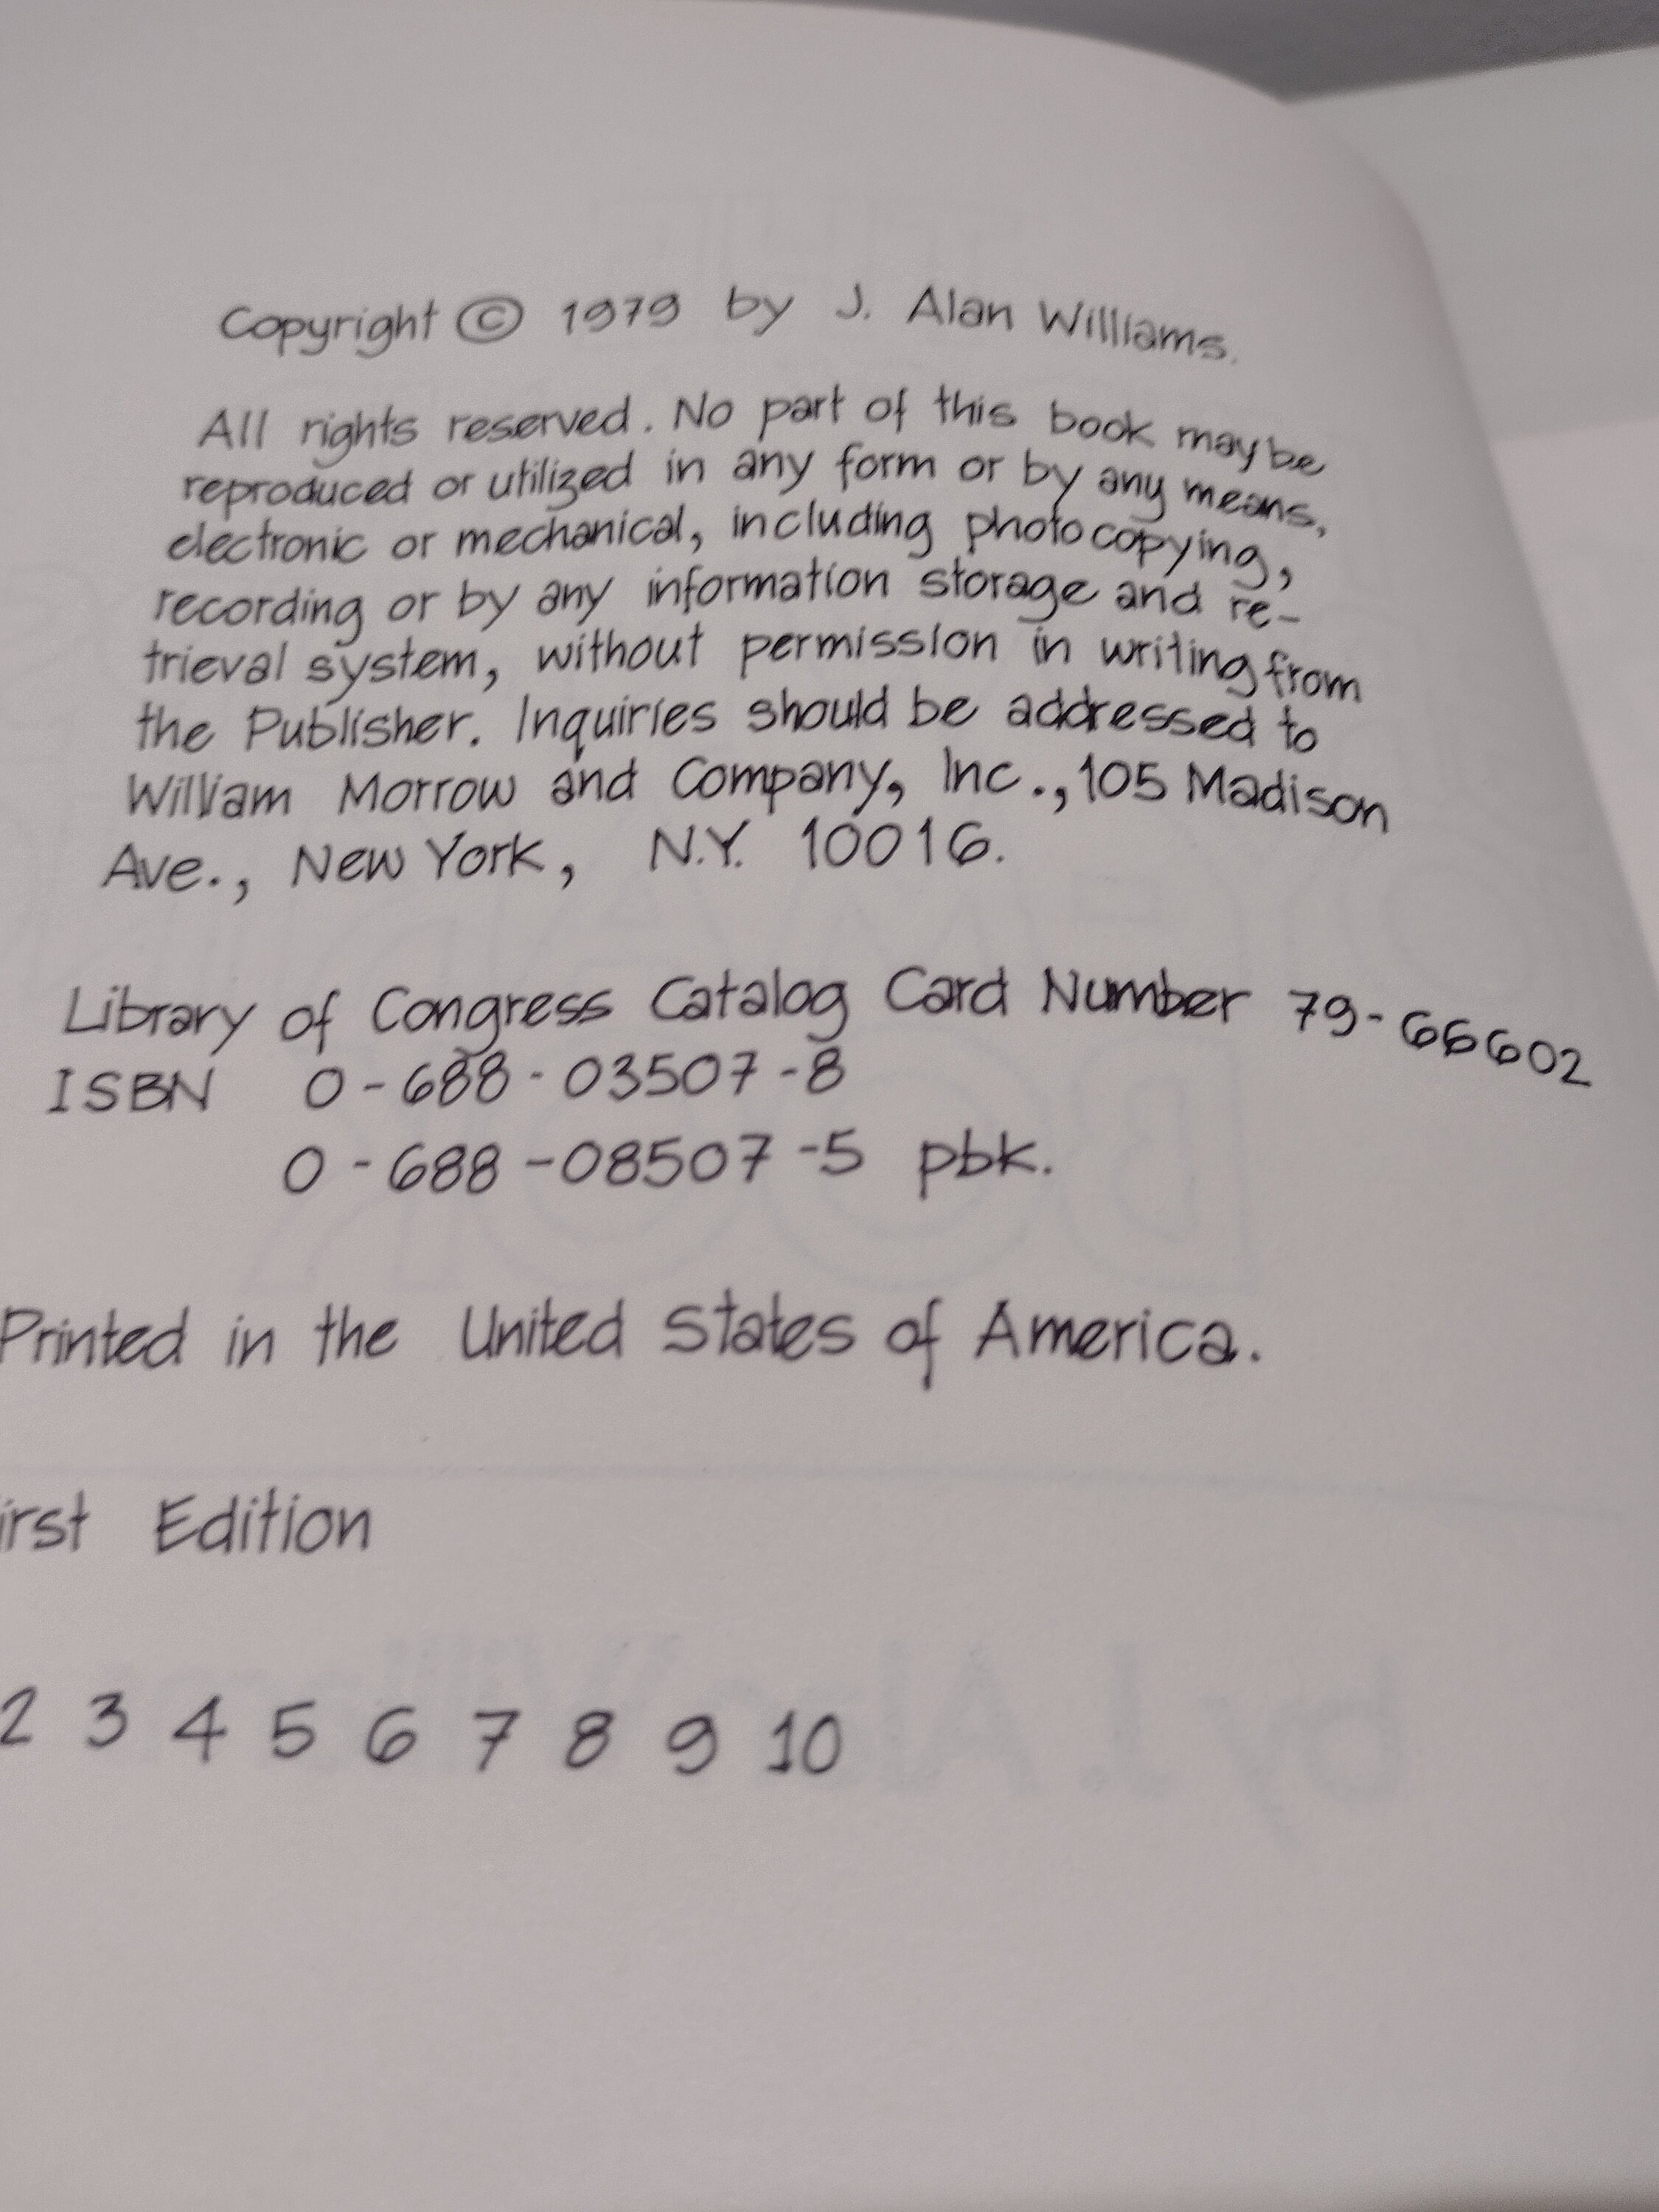 Copyright © 1979 by J. Alan Williams.
All rights reserved. No part of this book may be
reproduced or utilized in any form or by any means,
electronic or mechanical, including photocopying,
recording or by any information storage and re-
trieval system, without permission in writing from
the Publisher. Inquiries should be addressed to
William Morrow and Company, Inc., 105 Madison
Ave., New York, N.Y. 10016.
Library of Congress Catalog Card Number 79-66602
ISBN 0-688-03507-8
0-688-08507-5 pbk.
Printed in the United States of America.
irst Edition
2 3 4 5 6 7 8 9 10